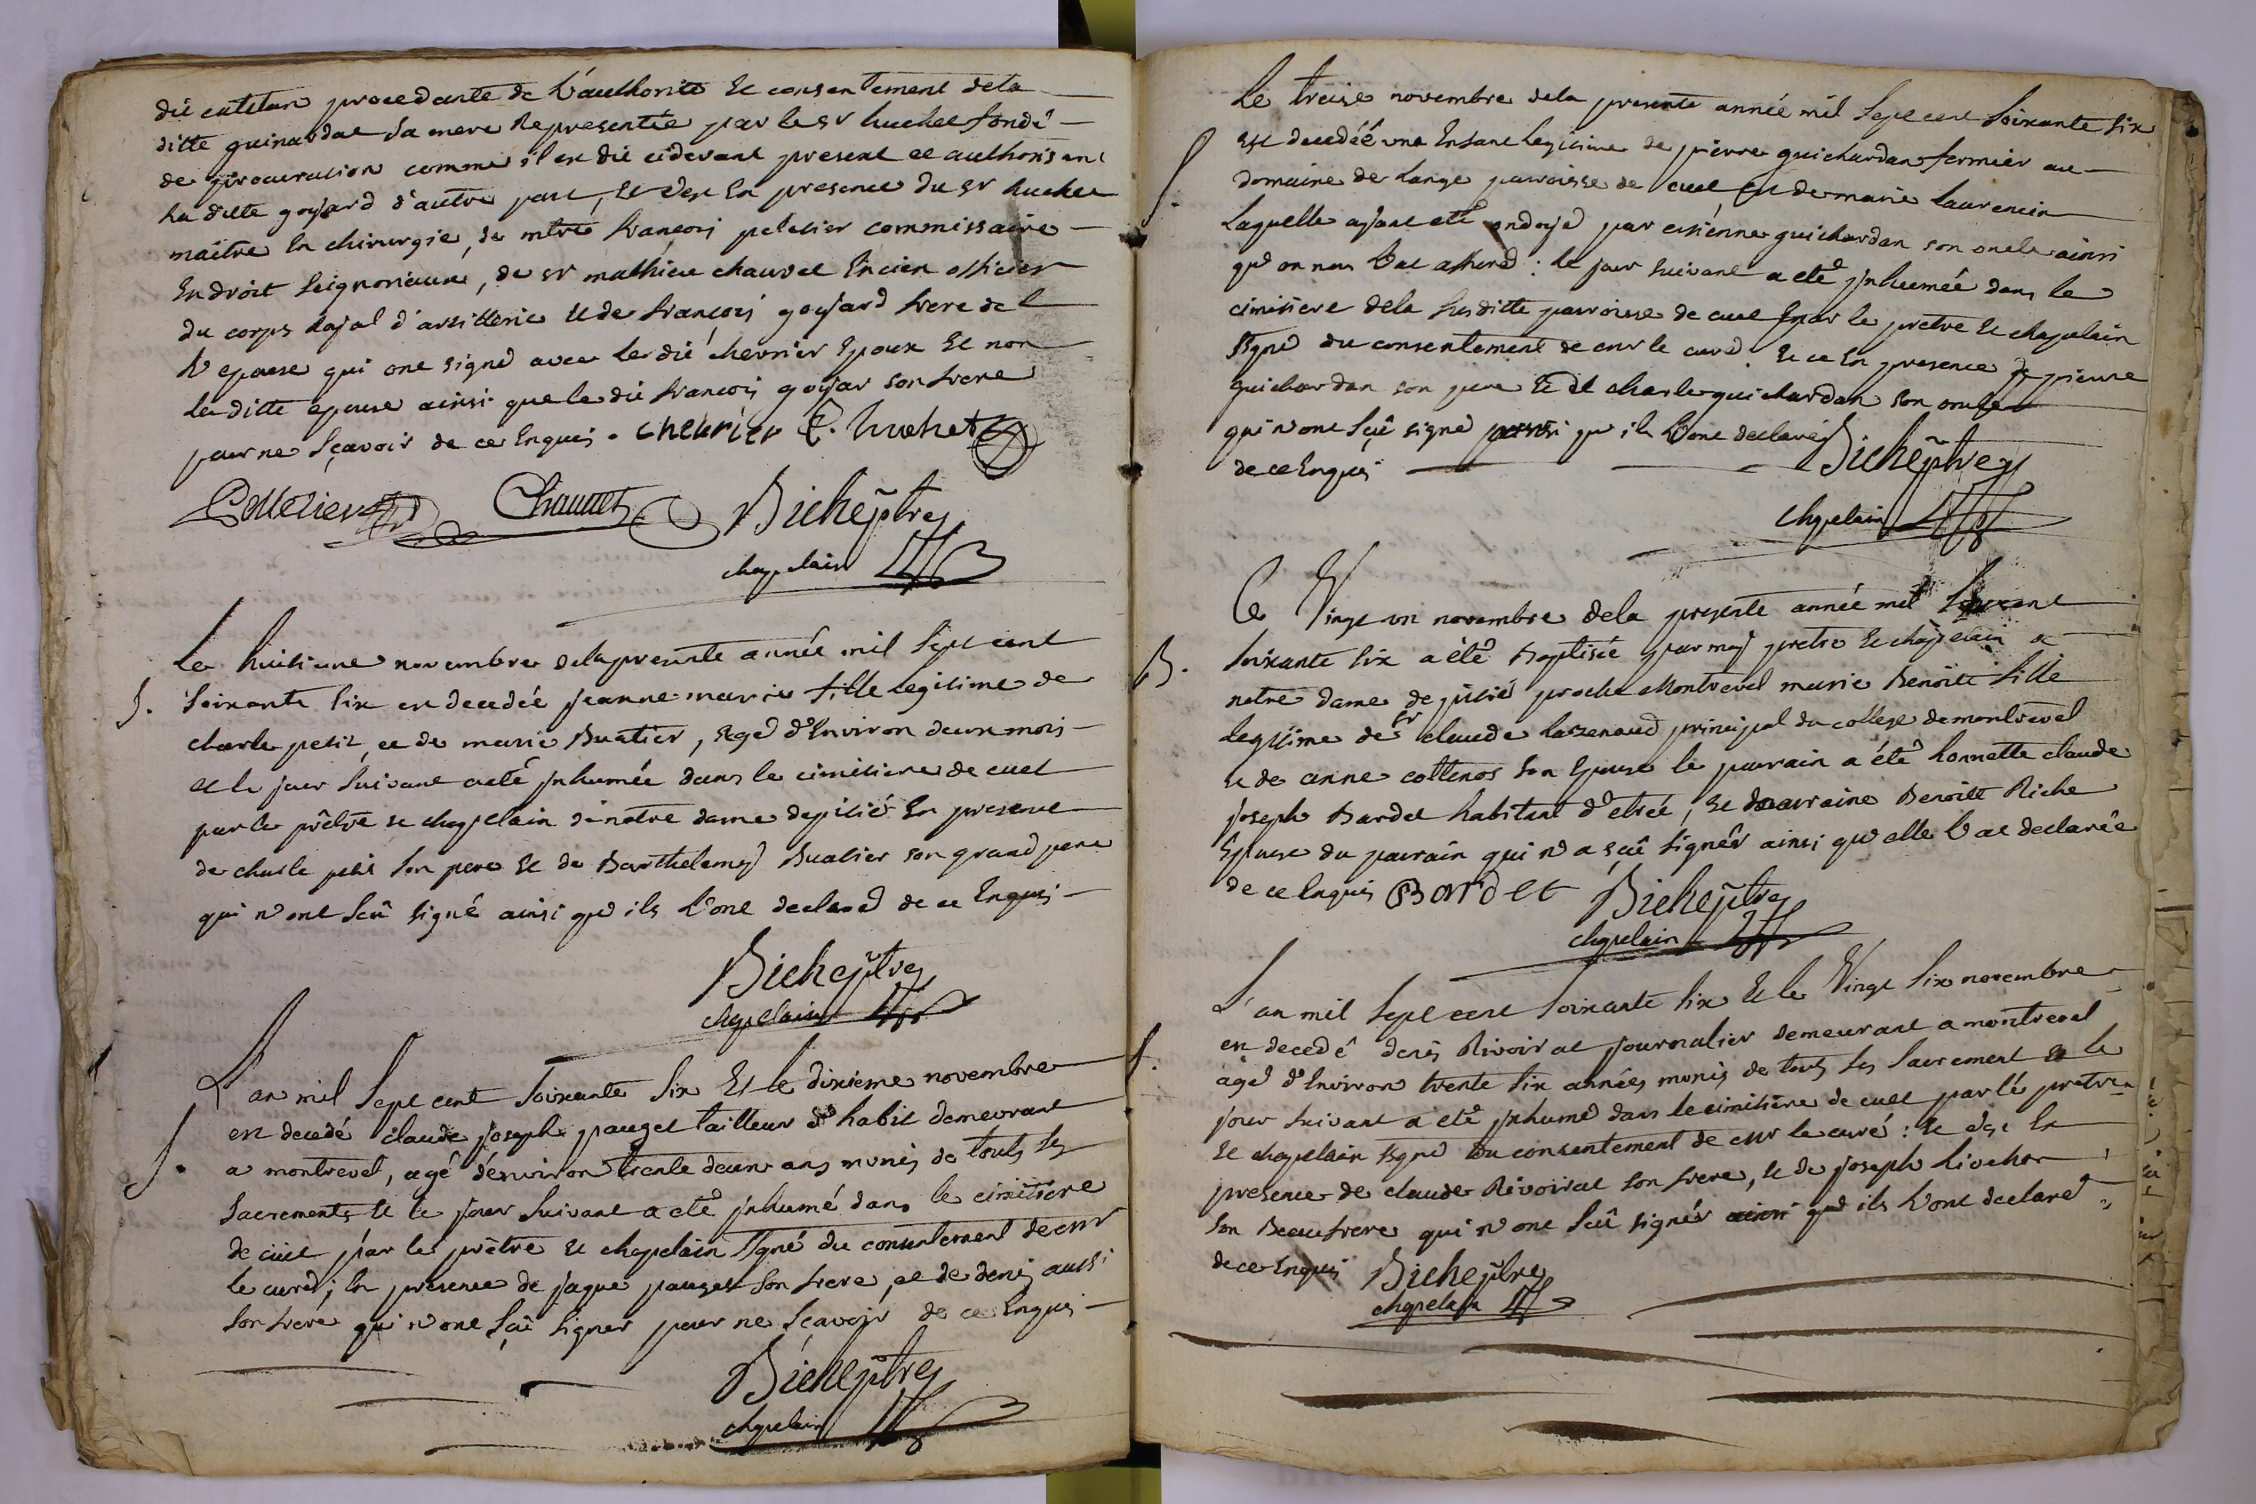 procedante de l'authorite et consentement dela
ditte guinardat sa mere Representée par le sr huchet fondé
de procuration comme il est dit cidevant present et authorisant
la ditte goyard d'autre part, et c'est En presence du sr huchet
maitre En chirurgie, de françois peletier commissaire
En droit seignoriaux, de sr mathieu chauvet Encien officier
du corps Rajal d'artillerie et de françois goyard frere de l
l'epouse qui ont signé avec le dit chevrier Epoux Et non
la ditte epouse ainsi que le dit françois goyar son frere
pour ne sçavoir de ce Enquis. chevrier huchet
Pelletier Chauvet Biche ptre
chapelain
Le huitieme novembre dela presente année mil sept cent
S. soixante six est decedée jeanne marie fille legitime de
charle petit, et de marie Buatier, agé d'Environ deux mois
et le jour suivant a eté jnhumée dans le cimitiere de cuet
par le prêtre et chapelain de notre dame de pitié En presence
de charle petit son pere Et de Barthelemy Buatier son grand pere
qui n'ont sçû signé ainsi que ils l'ont declaré de ce Enquis
Biche ptre
chapelain
L'an mil sept cent soixante six Et le dixieme novembre
est decedé claude joseph pauget tailleur d'habit demeurant
S. a montrevel, agé d'environ trente deux ans munis de touts ses
sacrements et le jour suivant a eté jnhumé dans le cimitiere
de cuet par le prêtre et chapelain sgné du consentement de mr
le curé; En presence de jaque pauget son frere, et de denis aussi
son frere qui n'ont sçû signer pour ne sçavoir de ce Enquis
Biche ptre
chapelain
Le treise novembre dela presente année mil sept cent soixante six
S. est decedéé une Enfant legitime de pierre guichardan fermier au
domaine de lange parroisse de cuet Et de marie laurencin
laquelle ajant eté ondoyé par etiénne guichardan son oncle ainsi
qu'on nous l'at assuré: le jour suivant a eté jnhumée dans le
cimitiere dela susditte parroisse de cuet par le pretre et chapelain
sgné du consentement de mr le curé. Et ce En presence de pierre
guichardan son pere Et de charle guichardan son oncle
qui n'ont sçû signé qu'ils l'ont declaré
de ce Enquis Biche ptre
chapelain
Ce Vingt un novembre dela presente année mil sept cent
B. soixante six a été Baptisée par moy pretre Et chapelain de
notre dame de pitié proche Montrevel marie Benoite fille
legitime de sr claude principal du college de montrevel
et de anne cottenos son Epouse le parrain a été honnette claude
joseph Bardet habitant d'etreé, et marraine Benoite Riche
Epouse du parrain qui n'a sçû signér ainsi qu'elle l'at declarée
de ce Enquis Bardet Biche ptre
chapelain
L'an mil sept cent soixante six Et le Vingt six novembre
S. est decedé denis Rivoirat journalier demeurant a montrevel
agé d'Environ trente six années munis de touts ses sacrement et le
jour suivant a eté jnhumé dans le cimitiere de cuet par lé pretre
et chapelain sgné du consentement de mr le curé: et c'est En
presence de claude Rivoirat son frere, et de joseph
son Beaufrere qui n'ont sçû signér ainsi que ils l'ont declaré
de ce Enquis Biche ptre
chapelain